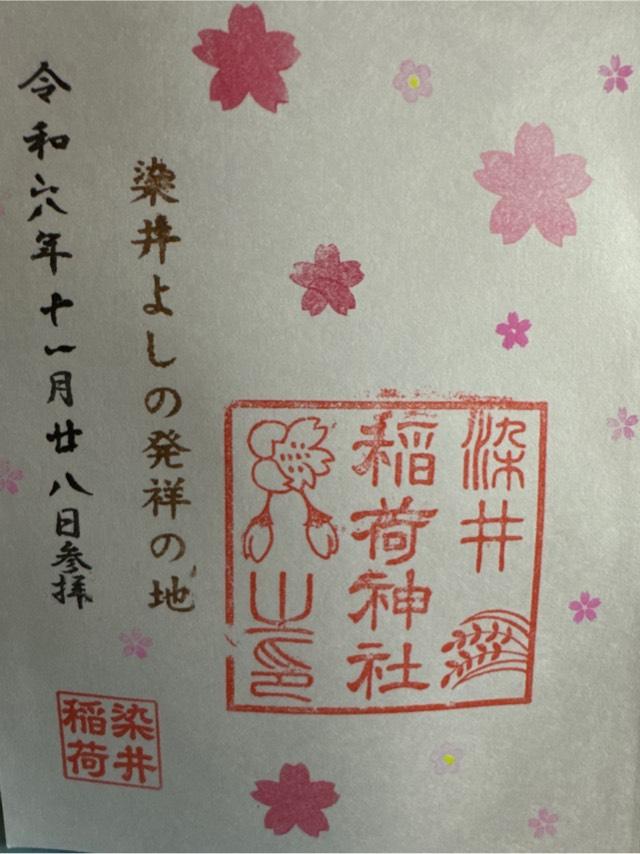 染井
稲荷神社
之印
染井よしの発祥の地
令和六年十一月廿八日参拝
染井
稲荷